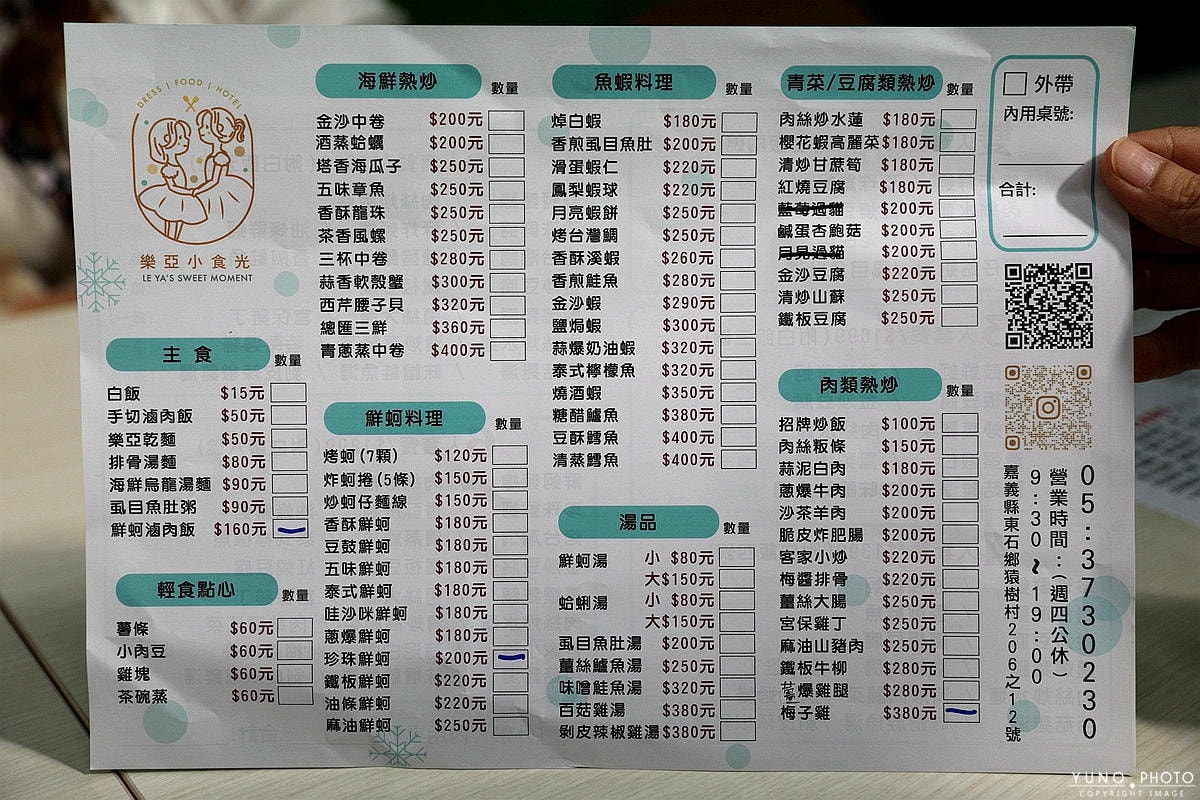 DRESS | FOOD | HOTEL
樂亞小食光
LE YA'S SWEET MOMENT
主食 數量
白飯 $15元
手切滷肉飯 $50元
樂亞乾麵 $50元
排骨湯麵 $80元
海鮮烏龍湯麵 $90元
虱目魚肚粥 $90元
鮮蚵滷肉飯 $160元
輕食點心 數量
薯條 $60元
小肉豆 $60元
雞塊 $60元
茶碗蒸 $60元
海鮮熱炒 數量
金沙中卷 $200元
酒蒸蛤蠣 $200元
塔香海瓜子 $250元
五味章魚 $250元
香酥龍珠 $250元
茶香風螺 $250元
三杯中卷 $280元
蒜香軟殼蟹 $300元
西芹腰子貝 $320元
總匯三鮮 $360元
青蔥蒸中卷 $400元
鮮蚵料理 數量
烤蚵(7顆) $120元
炸蚵捲(5條) $150元
炒蚵仔麵線 $150元
香酥鮮蚵 $180元
豆鼓鮮蚵 $180元
五味鮮蚵 $180元
泰式鮮蚵 $180元
哇沙咪鮮蚵 $180元
蔥爆鮮蚵 $180元
珍珠鮮蚵 $200元
鐵板鮮蚵 $220元
油條鮮蚵 $220元
麻油鮮蚵 $250元
魚蝦料理 數量
焯白蝦 $180元
香煎虱目魚肚 $200元
滑蛋蝦仁 $220元
鳳梨蝦球 $220元
月亮蝦餅 $250元
烤台灣鯛 $250元
香酥溪蝦 $260元
香煎鮭魚 $280元
金沙蝦 $290元
鹽焗蝦 $300元
蒜爆奶油蝦 $320元
泰式檸檬魚 $320元
燒酒蝦 $350元
糖醋鱸魚 $380元
豆酥鱈魚 $400元
清蒸鱈魚 $400元
湯品 數量
鮮蚵湯 小 $80元
大$150元
蛤蜊湯 小 $80元
大$150元
虱目魚肚湯 $200元
薑絲鱸魚湯 $250元
味噌鮭魚湯 $320元
百菇雞湯 $380元
剝皮辣椒雞湯$380元
青菜/豆腐類熱炒 數量
肉絲炒水蓮 $180元
櫻花蝦高麗菜$180元
清炒甘蔗筍 $180元
紅燒豆腐 $180元
藍莓過貓 $200元
鹹蛋杏鮑菇 $200元
月見過貓 $200元
金沙豆腐 $220元
清炒山蘇 $250元
鐵板豆腐 $250元
肉類熱炒 數量
招牌炒飯 $100元
肉絲粄條 $150元
蒜泥白肉 $180元
蔥爆牛肉 $200元
沙茶羊肉 $200元
脆皮炸肥腸 $200元
客家小炒 $220元
梅醬排骨 $220元
薑絲大腸 $250元
宮保雞丁 $250元
麻油山豬肉 $250元
鐵板牛柳 $280元
爆雞腿 $280元
梅子雞 $380元
外帶
內用桌號:
合計:
05:3730230
營業時間:(週四公休)
9:30~19:00
嘉義縣東石鄉猿樹村206之12號
YUNO PHOTO
COPYRIGHT IMAGE